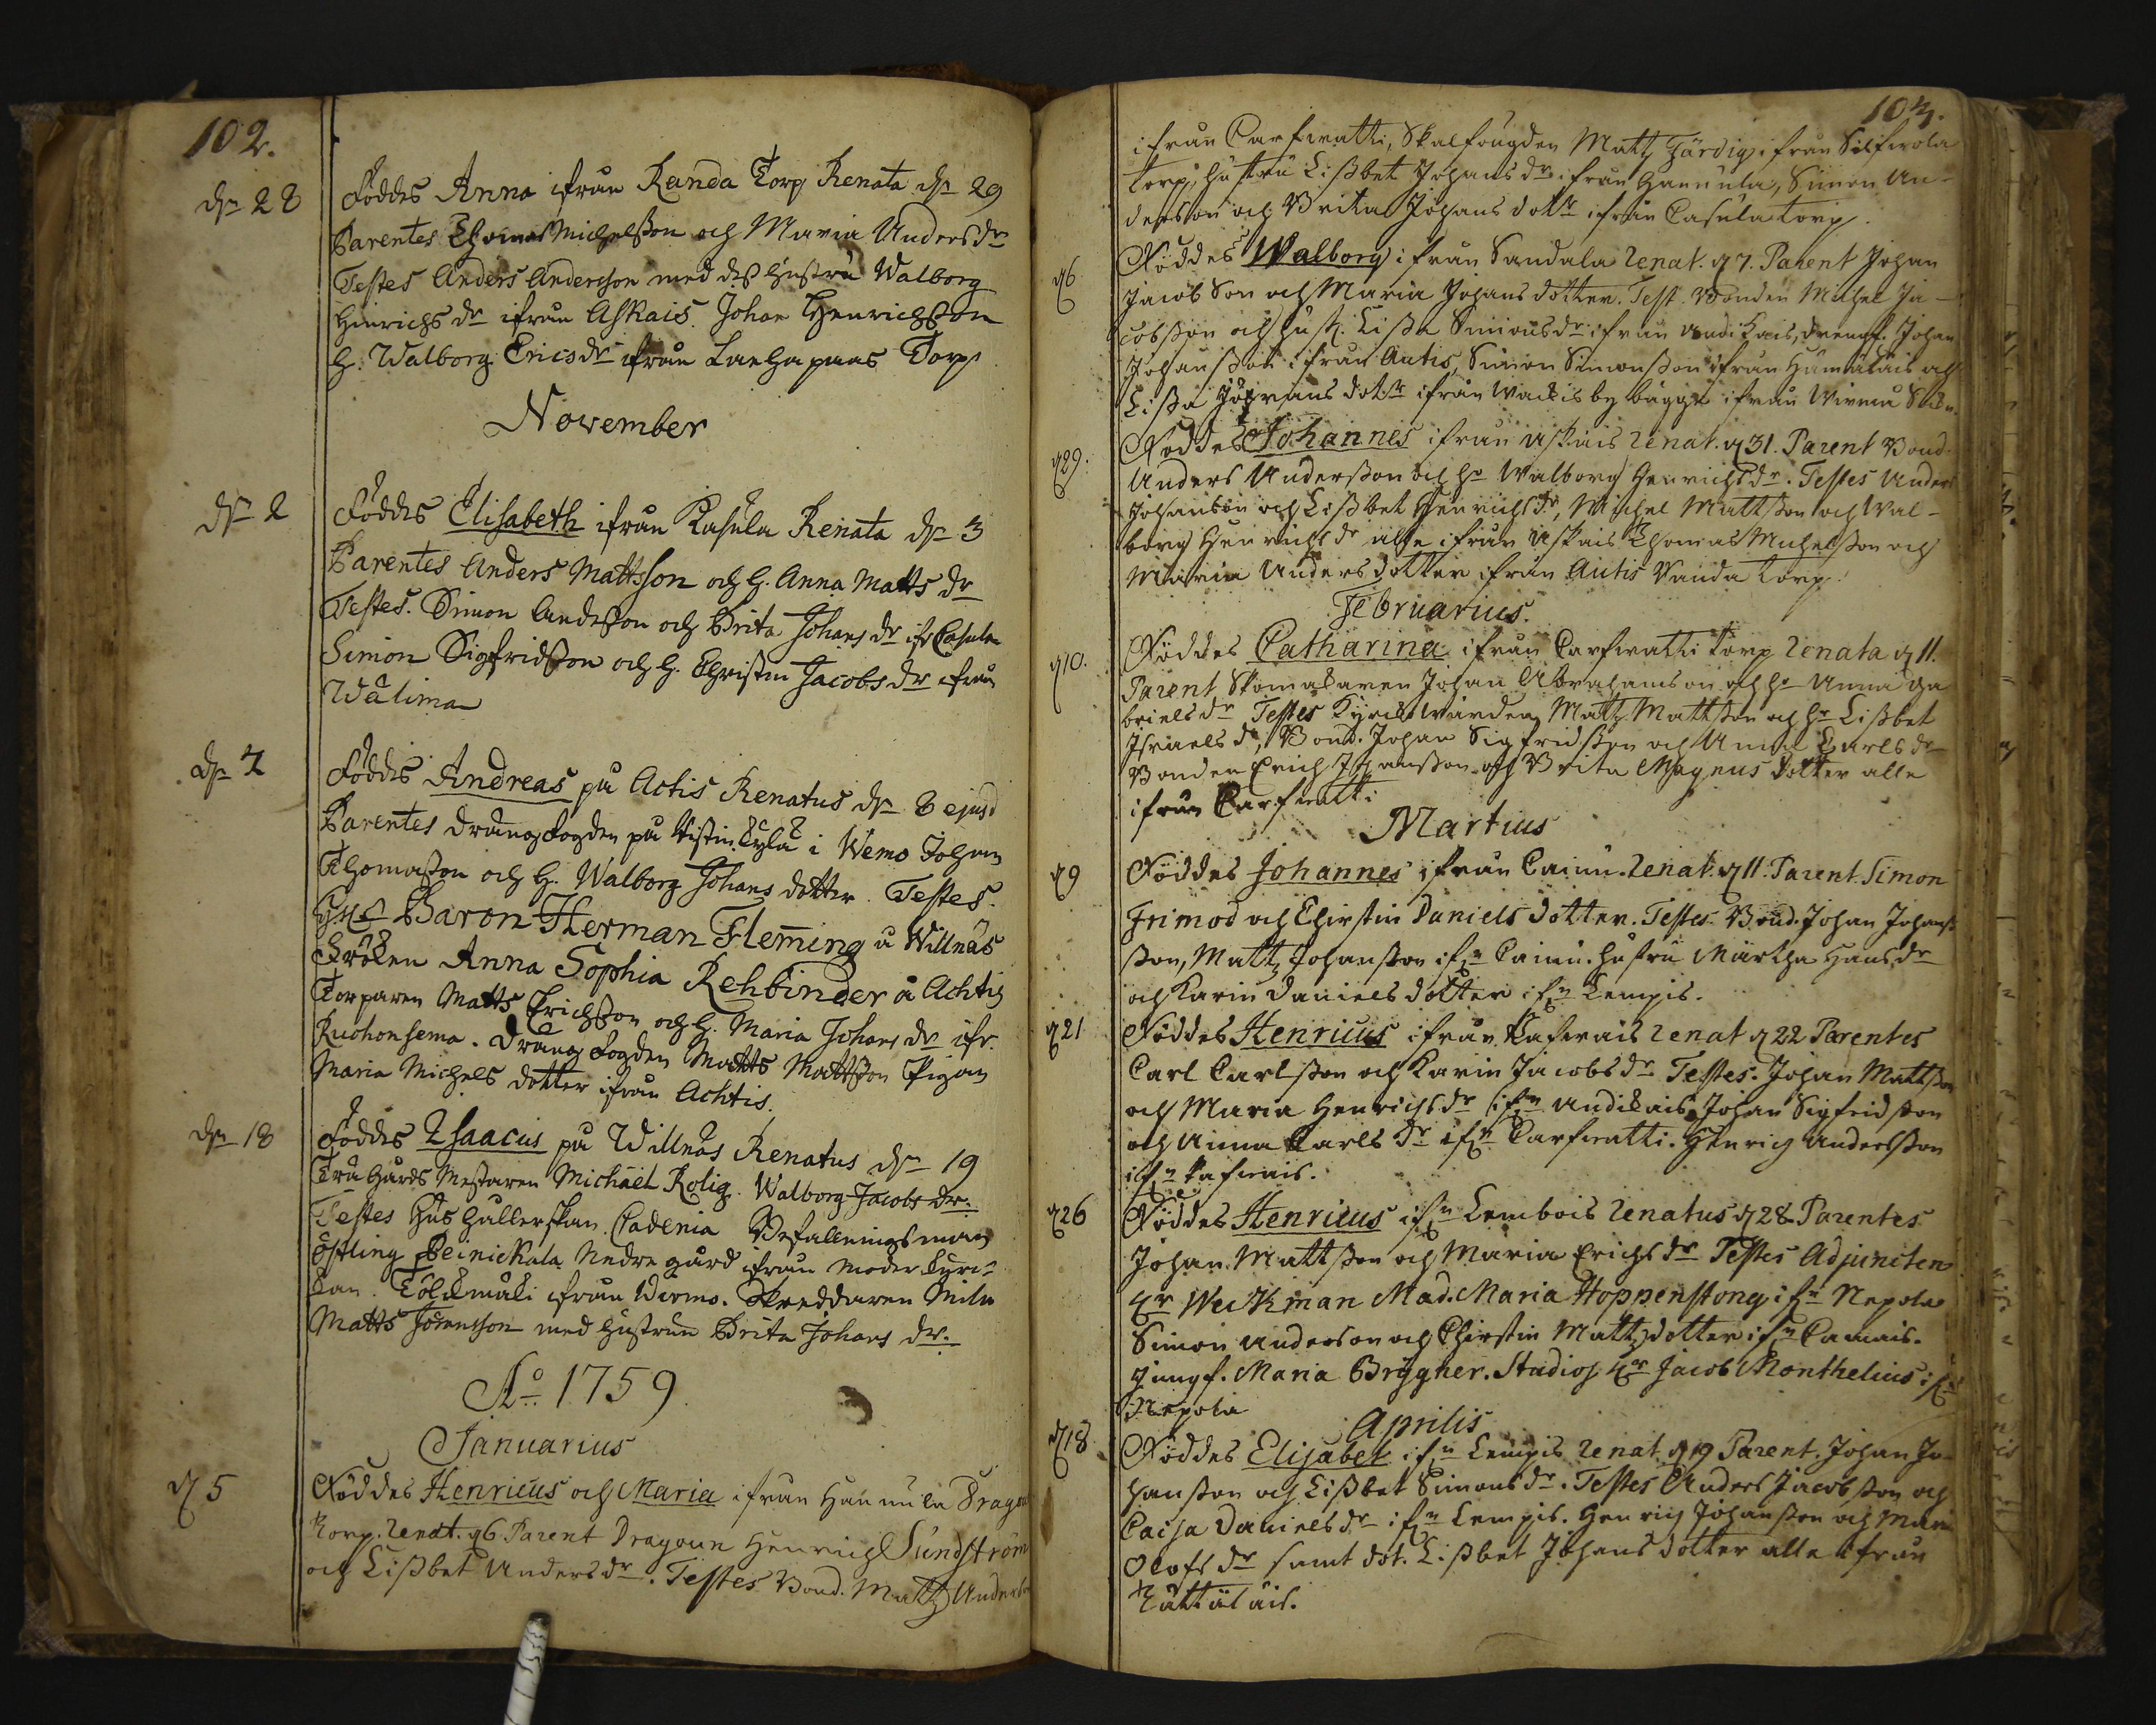 102.
dn 28
Föddes Anna ifrån Randa Torp Renata dn 29
Parentes Thomas Michelsson och Maria Anders dr
Testes Anders Andersson med deß hustru Walborg
Hinrichs dr ifrån Askais. Johan Henrichsson
h. Walborg Erics dr ifrån Torp
November
dn 2
Föddes Elisabeth ifrån Kasula Renata dn 3
Parentes Anders Mattsson och h. Anna Matts dr
Testes. Simon Andersson och Brita Johans dr ifr Casula
Simon Sigfridsson och h. Christin Jacobs dr ifrån
Wälima
dn 7
Föddes Andreas på Actis Renatus dn 8 ejusd
Parentes Drängfogden på i Wemo Johan
Thomasson och h. Walborg Johans dotter. Testes.
Baron Herman Fleming å Willnäs
Fröken Anna Sophia Rehbinder å Achtis
Torparen Matts Erichsson och h. Maria Johans dr ifr.
Ruohonsema. Dräng Fogden Matts Mattsson Pigan
Maria Michels dotter ifrån Achtis.
dn 18
Föddes Isaacus på Willnäs Renatus dn 19
Trägårds Mestaren Michael Rolig. Walborg Jacobs dr.
Testes Hushållerskan Cadenia Befallningsman
Östling Nedregård ifrån Moderkyr-
kan. ifrån Wirmo. Skreddaren Miln
Matts Jöransson med hustrun Brita Johans dr.
Ao 1759
Januarius
d 5
Föddes Henricus och Maria ifrån Hannula Dragon
Torp. Renat. d 6. Parent Dragoun Henrich Sundström
och Lißbet Anders dr. Testes Bond. Matts Anders
103.
ifrån Carfwatti, Skalfougden Matts Färdig ifrån Silfwola
torp, hustru Lißbet Johans dr ifrån Hannula, Simon An-
dersson och Brita Johans dotr ifrån Casula torp.
d 6
Föddes Walborg ifrån Sandala Renat. d 7. Parent Johan
Jacobson och Maria Johans dotter. Test. Bonden Michel Ja-
cobsson och hust. Lisa Simons dr ifrån Andikais, drengs. Johan
Johansson ifrån Autis, Simon Simonsson ifrån Hämäläis och
Lisa Jörans dotr ifrån by bägge ifrån Wirmo Sokn.
d 29.
Föddes Johannes ifrån Askais Renat. d 31. Parent Bond.
Anders Andersson och h. Walborg Henrichs dr. Testes Anders
Johanson och Lißbet Henrichs dr, Michel Mattsson och Wal-
borg Henrichs dr alle ifrån Askais Thomas Michelsson och
Maria Anders dotter ifrån Autis Randa torp.
Februarius.
d 10.
Föddes Catharina ifrån Carfwatti torp Renata d 11.
Parent Skomakaren Johan Abrahamson och h. Anna Ga
briels dr Testes Kyrckwärden Matts Mattsson och h. Lißbet
Israels dr, Bond. Johan Sigfridsson och Anna Carls dr
Bonden Erich Johansson och Brita Magnus dotter alle
ifrån Carfwatti
Martius
d 9
Föddes Johannes ifrån Cainu. Renat. d 11. Parent. Simon
Frimod och Chirstin Daniels dotter. Testes Bond. Johan Johans
son, Matts Johansson ifn Cainu. hustru Märtha Hans dr
och Karin Daniels dotter ifn Lempis.
d 21
Föddes Henricus ifrån Kafwais Renat d 22 Parentes
Carl Carlsson och Karin Jacobs dr Testes. Johan Mattsson
och Maria Henrichs dr ifn Andikais, Johan Sigfridsson
och Anna Carls dr ifn Carfwatti. Henrich Andersson
ifn Kafwais.
d 26
Föddes Henricus ifn Lembois Renatus d 28 Parentes
Johan Mattsson och Maria Erichs dr Testes Adjuncten
Hr Weckman Mad. Maria Hoppenstong ifn Nepola
Simon Anderson och Chirstin Matts dotter ifn Camais.
Jungf. Maria Brygher. Studios Hr Jacob Monthelius ifn
Nepola
Aprilis
d 18
Föddes Elisabet ifn Lempis Renat. d 19 Parent. Johan Jo-
hansson och Lißbet Simons dr. Testes Anders Jacobsson och
Caisa Daniels dr ifn Lempis. Henrich Johansson och Maria
Olofs dr samt dot. Lißbet Johans dotter alle ifrån